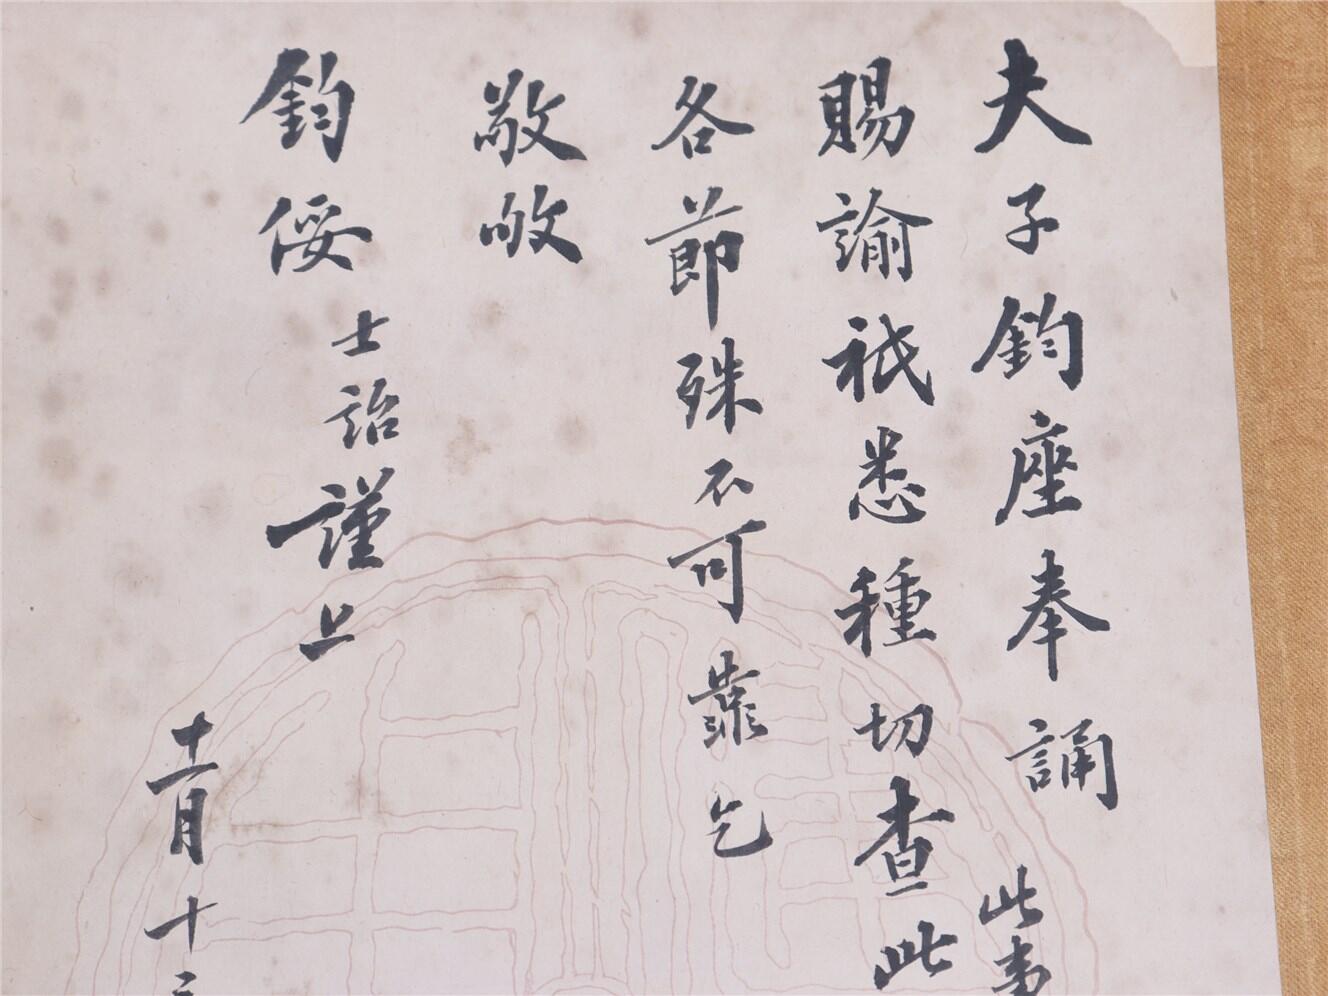 夫子鈞座奉誦
賜諭祗悉種切查此
各節殊不可靠乞
敬
鈞綏士詒謹上
十一月十三
此事